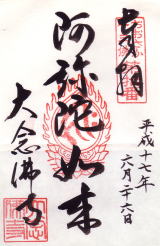 奉拝
阿弥陀如来
大念佛寺
平成十七年
六月二十六日